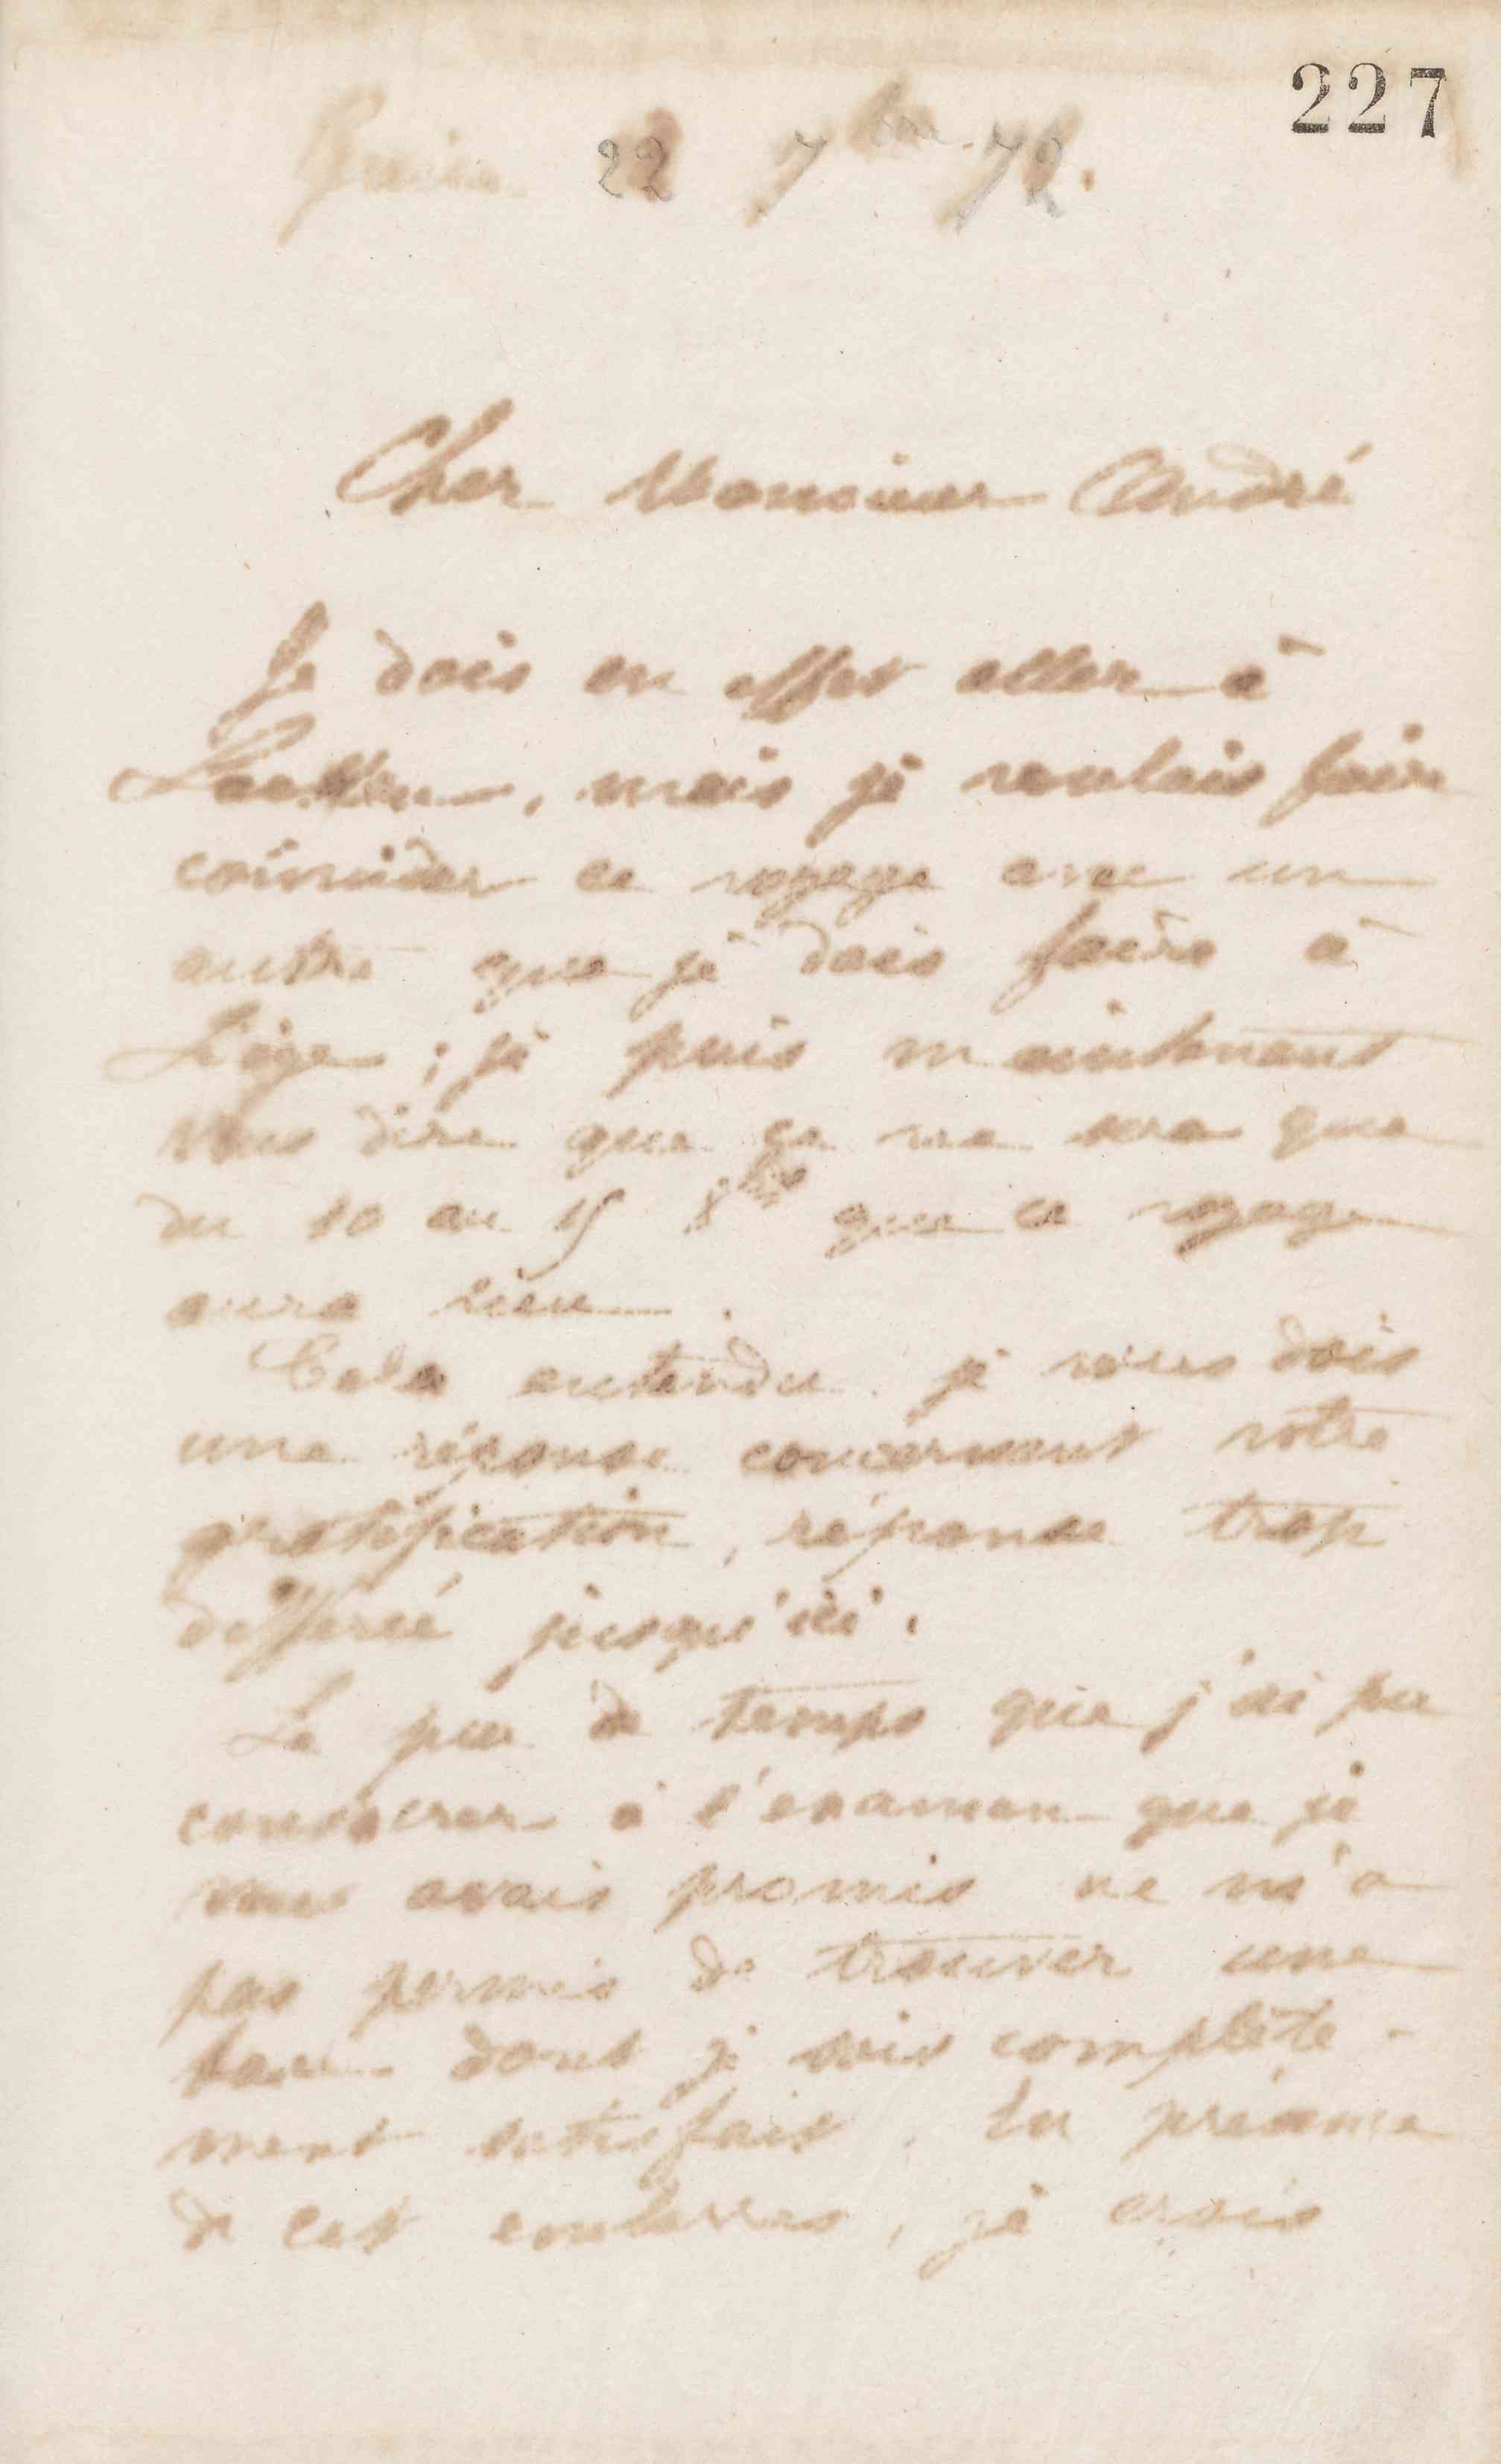 227
Guise 22 7bre 72.
Cher Monsieur André
Je dois en effet aller à
Laeken, mais je voulais faire
coïncider ce voyage avec un
autre que je dois faire à
Liège ; je puis maintenant
vous dire que ce ne sera que
du 10 au 15 8bre que ce voyage
aura lieu.
Cela entendu je vous dois
une réponse concernant votre
gratification, réponse trop
différée jusqu'ici.
Le peu de temps que j'ai pu
consacrer à l'examen que je
vous avais promis ne m'a
pas permis de trouver une
base dont je sois complète-
ment satisfait. En présence
de cet embarras, je crois